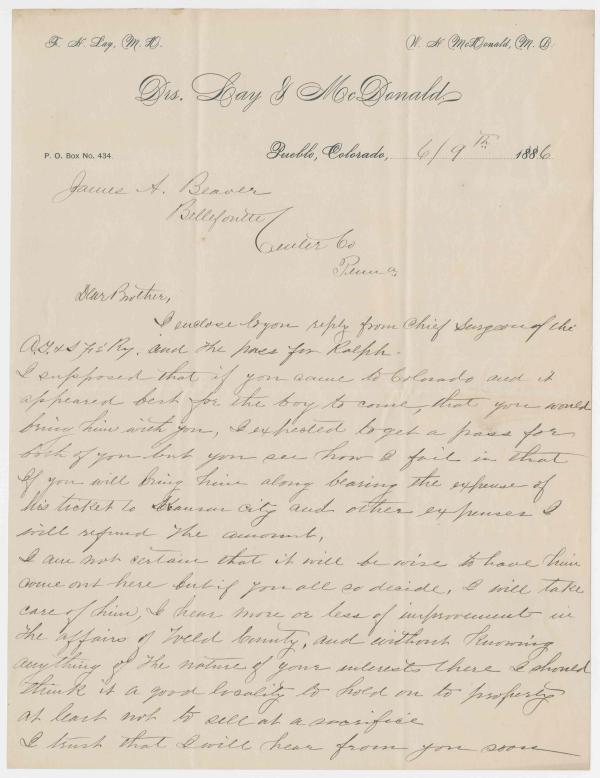 F. H. Lay, M. D. W. H. McDonald, M. D.
Drs. Lay & McDonald
P. O. Box No. 434. Pueblo, Colorado, 6/9th 1886
James A. Beaver
Bellefonte
Center Co
Penna
Dear Brother,
I enclose to you reply from Chief Surgeon of the
A.T.& S Fé Ry. and the pass for Ralph.
I supposed that if you came to Colorado and it
appeared best for the boy to come, that you would
bring him with you, I expected to get a pass for
both of you but you see how I fail in that
If you will bring him along bearing the expense of
his ticket to Kansas City and other expenses I
will refund the amount.
I am not certain that it will be wise to have him
come out here but if you all so decide, I will take
care of him, I hear more or less of improvements in
the affairs of Weld County, and without knowing
anything of the nature of your interests there I should
think it a good locality to hold on to property
at least not to sell at a sacrifice
I trust that I will hear from you soon